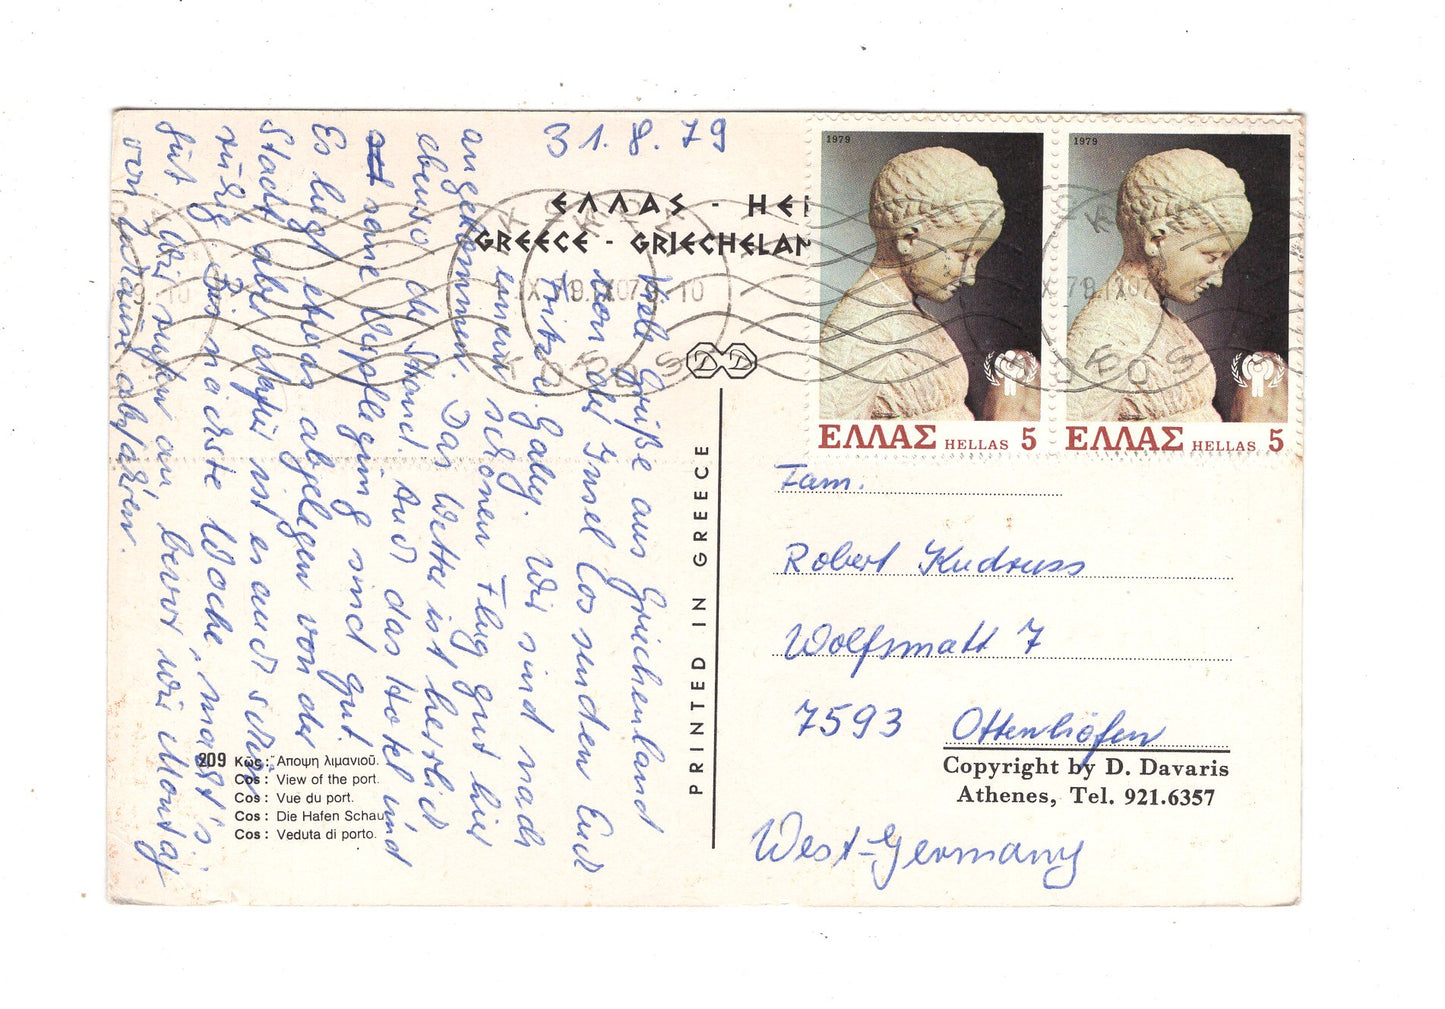 31. 8. 79
ΕΛΛΑΣ - HEL
GREECE - GRIECHELAN
Viele Grüße aus Griechenland
von der Insel Cos senden Euch
Fritz u. Gaby. Wir sind nach
einem schönen Flug gut hier
angekommen. Das Wetter ist herrlich
ebenso der Strand. Auch das Hotel und
seine Verpflegung sind gut.
Es liegt etwas abgelegen von der
Stadt aber dafür ist es auch sehr
ruhig. Bis nächste Woche, macht's
gut wir rufen an bevor wir Montag
von zuhause abfahren.
209 Κῶς: Αποψη λιμανιοῦ.
Cos: View of the port.
Cos: Vue du port.
Cos: Die Hafen Schau
Cos: Veduta di porto.
PRINTED IN GREECE
1979
ΕΛΛΑΣ HELLAS 5
1979
ΕΛΛΑΣ HELLAS 5
Fam.
Robert Kudruss
Wolfsmatt 7
7593 Ottenhöfen
Copyright by D. Davaris
Athenes, Tel. 921.6357
West-Germany